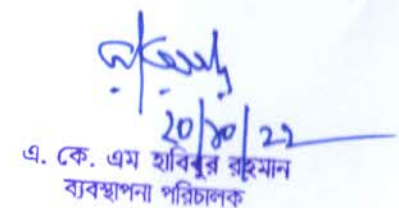 20/10/22
এ. কে. এম হাবিবুর রহমান
ব্যবস্থাপনা পরিচালক